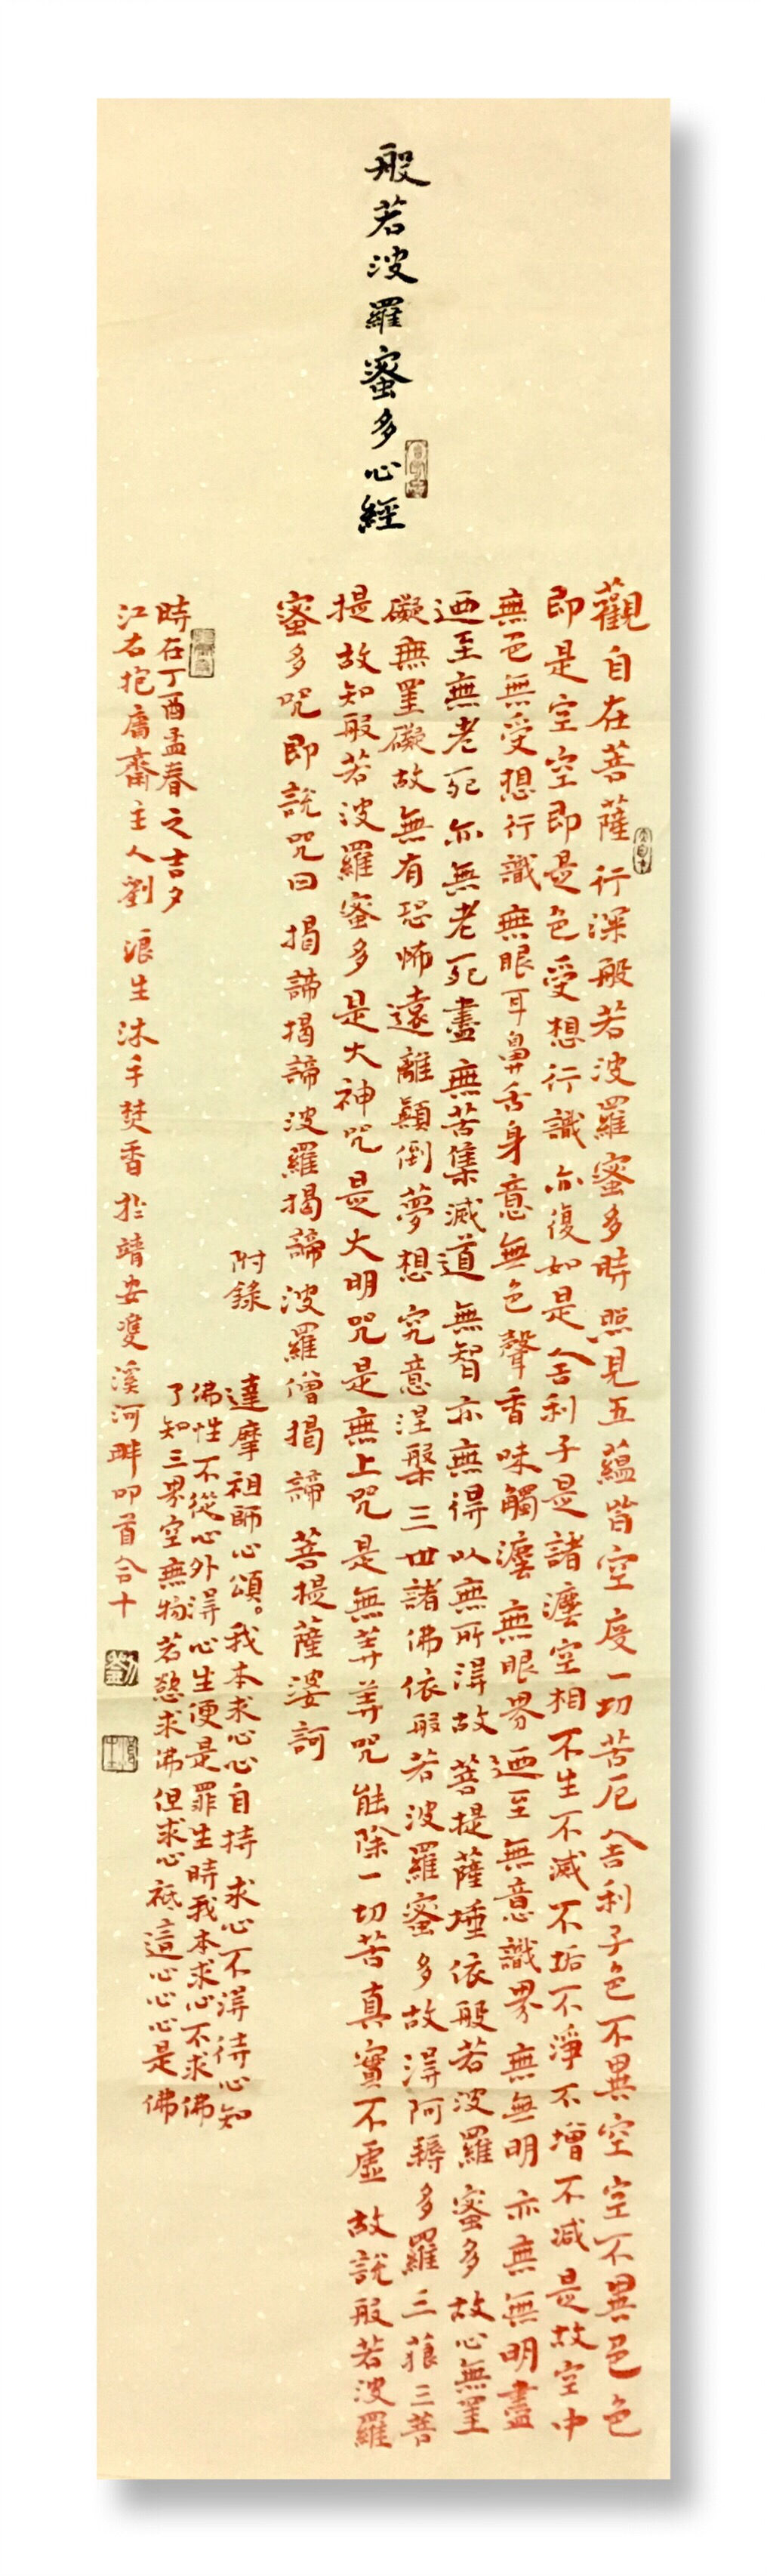 般若波羅蜜多心經
觀自在菩薩行深般若波羅蜜多時照見五蘊皆空度一切苦厄舍利子色不異空空不異色色
即是空空即是色受想行識亦復如是舍利子是諸灋空相不生不滅不垢不淨不增不減是故空中
無色無受想行識無眼耳鼻舌身意無色聲香味觸灋無眼界迺至無意識界無無明亦無無明盡
迺至無老死亦無老死盡無苦集滅道無智亦無得以無所得故菩提薩埵依般若波羅蜜多故心無罣
礙無罣礙故無有恐怖遠離顛倒夢想究意涅槃三世諸佛依般若波羅蜜多故得阿耨多羅三藐三菩
提故知般若波羅蜜多是大神咒是大明咒是無上咒是無等等咒能除一切苦真實不虛故說般若波羅
蜜多咒即說咒曰揭諦揭諦波羅揭諦波羅僧揭諦菩提薩婆訶
附錄
達摩祖師心頌。我本求心心自持求心不得待心知
佛性不從心外得心生便是罪生時我本求心不求佛
了知三界空無物若慾求佛但求心祗這心心心是佛
時在丁酉孟春之吉夕
江右抱膺齋主人劉浪生沐手焚香於靖安雙溪河畔叩首合十